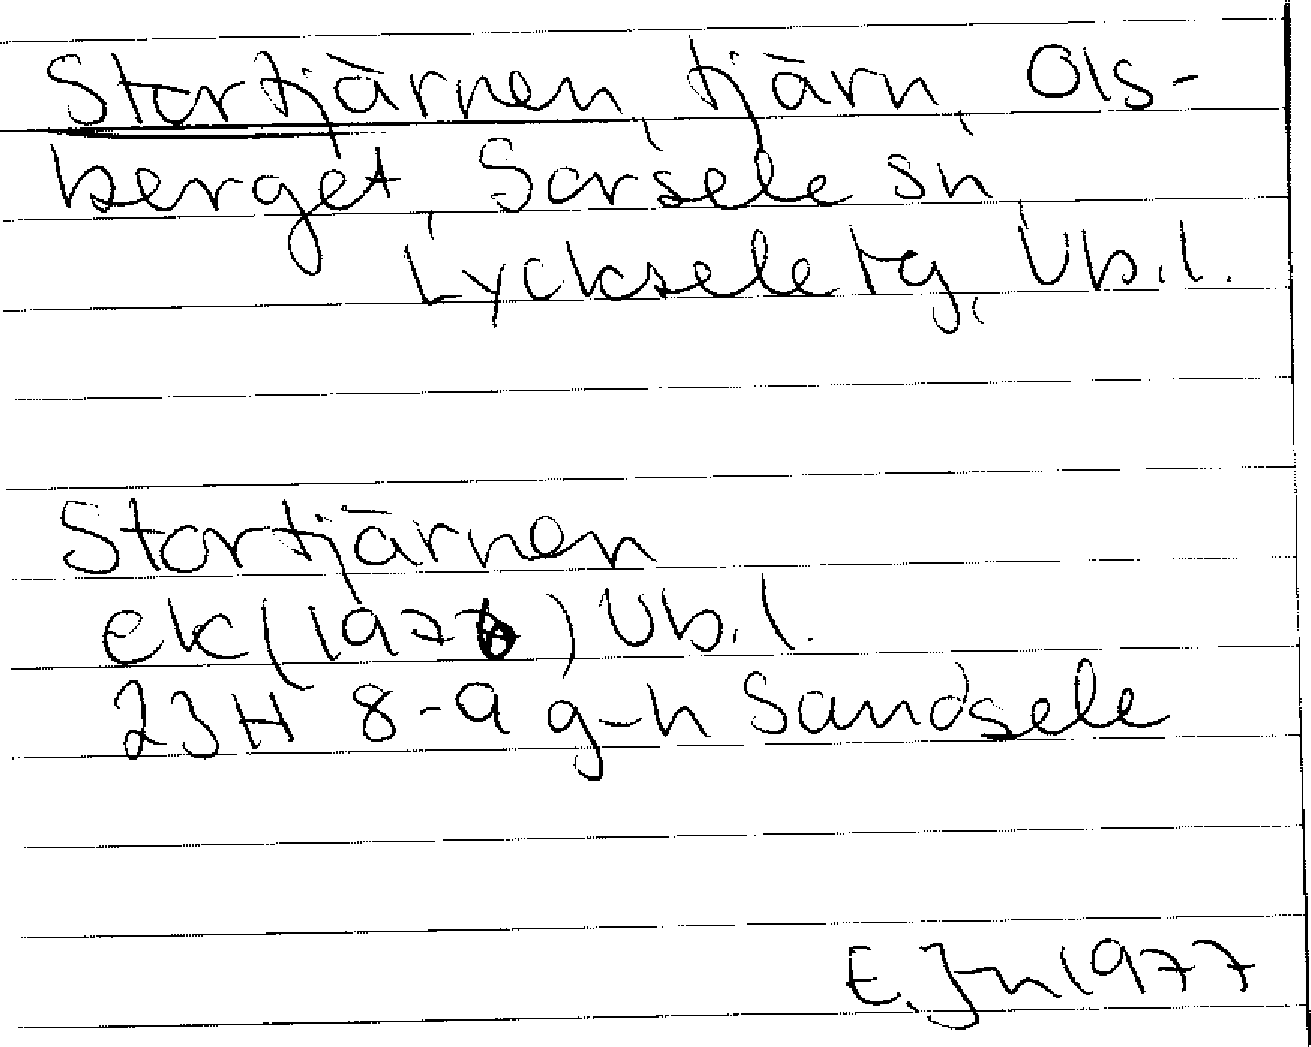 Stortjärnen, tjärn, Ols-
berget, Sorsele sn,
Lycksele tg, Vb.l.
Stortjärnen
ek (1976) Vb.l.
23H 8-9 g-h Sandsele
E. Jn 1977